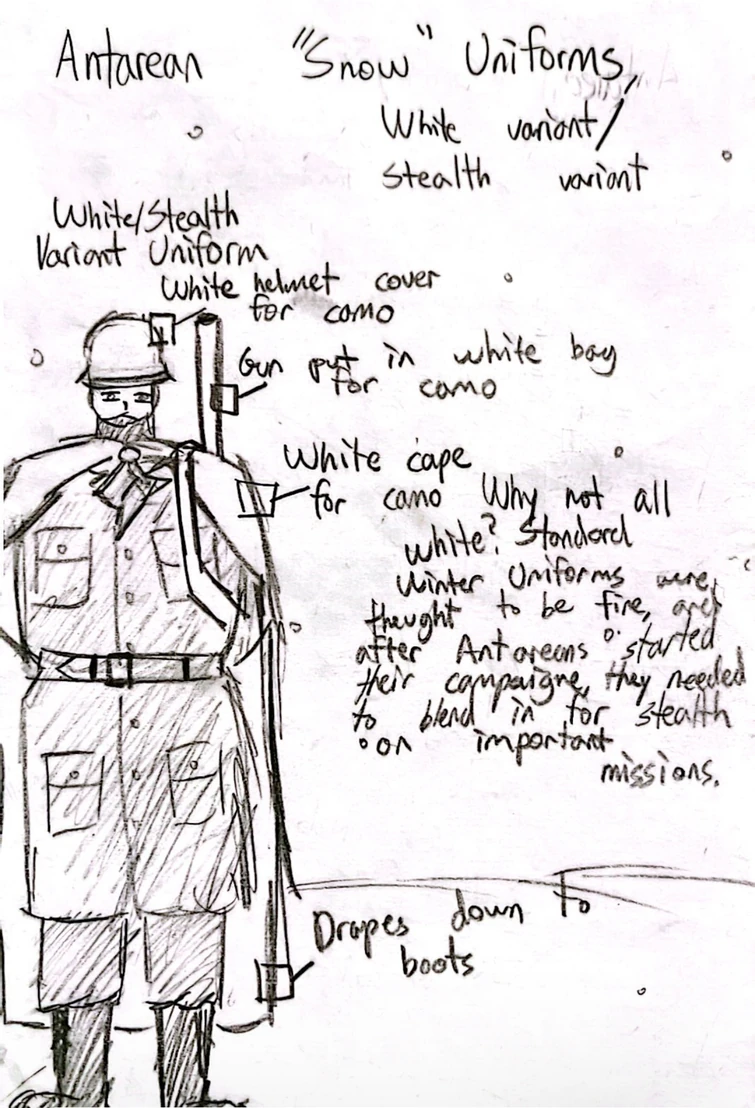 Antarean "Snow" Uniforms,
White variant/
Stealth variant
White/Stealth
Variant Uniform
White helmet cover
for camo
Gun put in white bag
for camo
White cape
for camo Why not all
white? Standard
Winter Uniforms were
thought to be fire, and
after Antareans started
their campaigne, they needed
to blend in for stealth
on important
missions.
Drapes down to
boots